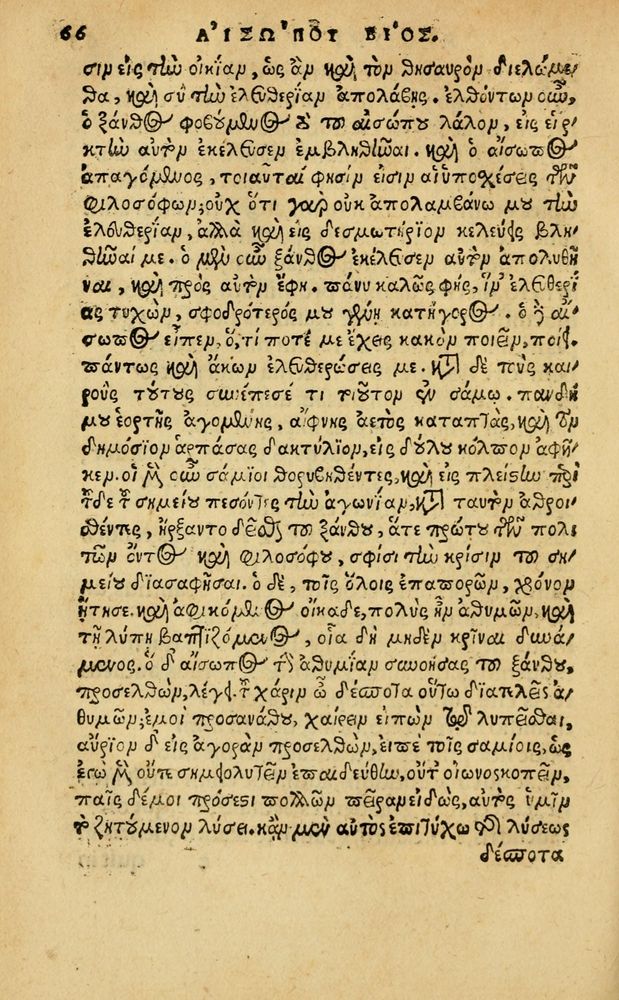 66 ΑἸΣΩ'ΠΟΥ ΒΙ'ΟΣ.
σιν εἰς τὴν οἰκίαν, ὡς ἂν καὶ τὸν θησαυρὸν διελώμε
θα, καὶ σὺ τὴν ἐλευθερίαν ἀπολάβῃς. ἐλθόντων οὖν,
ὁ ξάνθος φοβούμενος τὸ τοῦ αἰσώπου λάλον, εἰς εἱρ
κτὴν αὐτὸν ἐκέλευσεν ἐμβληθῆναι. καὶ ὁ αἴσωπος
ἀπαγόμενος, τοιαῦται φησὶν εἰσὶν αἱ ὑποσχέσεις τῶν
φιλοσόφων; οὐχ ὅτι γὰρ οὐκ ἀπολαμβάνω μου τὴν
ἐλευθερίαν, ἀλλὰ καὶ εἰς δεσμωτήριον κελεύεις βλη
θῆναί με. ὁ μὲν οὖν ξάνθος ἐκέλευσεν αὐτὸν ἀπολυθῆ
ναι, καὶ πρὸς αὐτὸν ἔφη. πάνυ καλῶς φῂς, ἵν' ἐλευθερί
ας τυχὼν, σφοδρότερός μου γένῃ κατήγορος. ὁ δὲ αἴ
σωπος εἶπεν, ὅ, τί ποτέ με ἔχεις κακὸν ποιεῖν, ποίει.
πάντως καὶ ἄκων ἐλευθερώσεις με. κατὰ δὲ τοὺς και
ροὺς τούτους συνέπεσέ τι τοιοῦτον ἐν σάμῳ. πανδή
μου ἑορτῆς ἀγομένης, αἴφνης ἀετὸς καταπτὰς, καὶ τὸν
δημόσιον ἁρπάσας δακτύλιον, εἰς δούλου κόλπον ἀφῆ
κεν. οἱ μὲν οὖν σάμιοι θορυβηθέντες, καὶ εἰς πλείστην περὶ
τοῦδε τοῦ σημείου πεσόντες τὴν ἀγωνίαν, κατὰ ταυτὸν ἀθροι
σθέντες, ἤρξαντο δεῖσθαι τοῦ ξάνθου, ἅτε πρώτου τῶν πολι
τῶν ὄντος καὶ φιλοσόφου, σφίσι τὴν κρίσιν τοῦ ση
μείου διασαφῆσαι. ὁ δὲ, τοῖς ὅλοις ἐπαπορῶν, χρόνον
ᾔτησε. καὶ ἀφικόμενος οἴκαδε, πολὺς ἦν ἀθυμῶν, καὶ
τῇ λύπῃ βαπτιζόμενος, οἷα δὴ μηδὲν κρῖναι δυνά
μενος. ὁ δ' αἴσωπος τὴν ἀθυμίαν συνοήσας τοῦ ξάνθου,
προσελθὼν, λέγει. τοῦ χάριν ὦ δέσποτα οὕτω διαπλεῖς ἀ
θυμῶν; ἐμοὶ προσανάθου, χαίρειν εἰπὼν τῷ λυπεῖσθαι,
αὔριον δ' εἰς ἀγορὰν προσελθὼν, εἰπὲ τοῖς σαμίοις, ὡς
ἐγὼ μὲν οὔτε σημειολυτεῖν ἐπαιδεύθην, οὔτ' οἰωνοσκοπεῖν,
παῖς δέ μοι πρόσεστι πολλῶν πεῖραν εἰδὼς, αὐτὸς ὑμῖν
τὸ ζητούμενον λύσει. κἂν μὲν αὐτὸς ἐπιτύχω τῆς λύσεως
δέσποτα